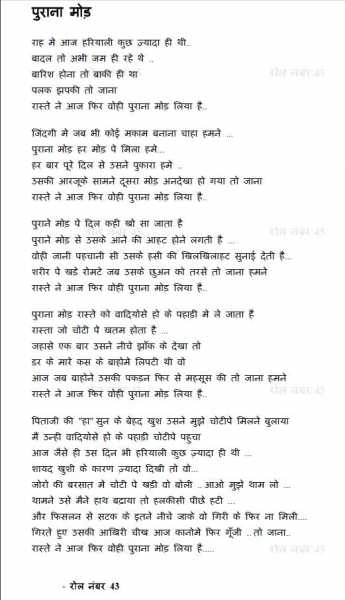 पुराना मोड़
राह मे आज हरियाली कुछ ज़्यादा ही थी..
बादल तो अभी जम ही रहे थे ..
बारिश होना तो बाकी ही था
रोल नंबर 43
पलक झपकी तो जाना
रास्ते ने आज फिर वोही पुराना मोड़ लिया है..
जिंदगी मे जब भी कोई मकाम बनाना चाहा हमने ...
पुराना मोड़ हर मोड़ पे मिला हमे...
हर बार पूरे दिल से उसने पुकारा हमे ..
उसकी आरजूके सामने दूसरा मोड़ अनदेखा हो गया तो जाना
रास्ते ने आज फिर वोही पुराना मोड़ लिया है..
पुराने मोड़ पे दिल कही खो सा जाता है
रोल नंबर 43
पुराने मोड़ से उसके आने की आहट होने लगती है ...
वोही जानी पहचानी सी उसके हसी की खिलखिलाहट सुनाई देती है...
शरीर पे खडे रोमटे जब उसके छुअन को तरसे तो जाना हमने
रास्ते ने आज फिर वोही पुराना मोड़ लिया है..
पुराना मोड़ रास्ते को वादियोंसे हो के पहाडी मे ले जाता हैं
रास्ता जो चोटी पे खतम होता हैं ...
जहासे एक बार उसने नीचे झाँक के देखा तो
डर के मारे कस के बाहोमे लिपटी थी वो
आज जब बाहोंने उसकी पकडन फिर से महसूस की तो जाना हमने
रास्ते ने आज फिर वोही पुराना मोड़ लिया है..
रोल नंबर 43
पिताजी की "हा" सुन के बेहद खुश उसने मुझे चोटीपे मिलने बुलाया
मैं उन्ही वादियोसे हो के पहाडी चोटीपे पहुचा
आज जैसे ही उस दिन भी हरियाली कुछ ज़्यादा ही थी ...
शायद खुशी के कारण ज़्यादा दिखी तो वो...
जोरो की बरसात में चोटी पे खडी वो बोली .. आओ मुझे थाम लो ...
थामने उसे मैने हाथ बढ़ाया तो हलकीसी पीछे हटी ...
और फिसलन से सटक के इतने नीचे जाके वो गिरी के फिर ना मिली....
गिरते हुए उसकी आखिरी चीख आज कानोमे फिर गूँजी ..तो जाना..
रास्ते ने आज फिर वोही पुराना मोड़ लिया है.....
रोल नंबर 43
- रोल नंबर 43